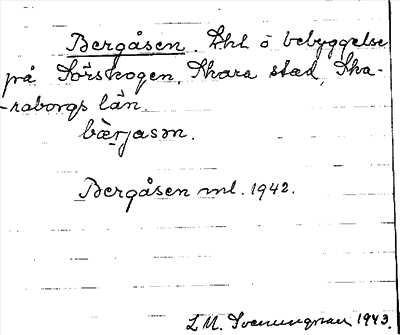 Bergåsen. Lht o bebyggelse
på Sörskogen, Skara stad, Ska-
-raborgs län.
bærjasən.
Bergåsen ml. 1942.
L M. Svenungsson 1943.